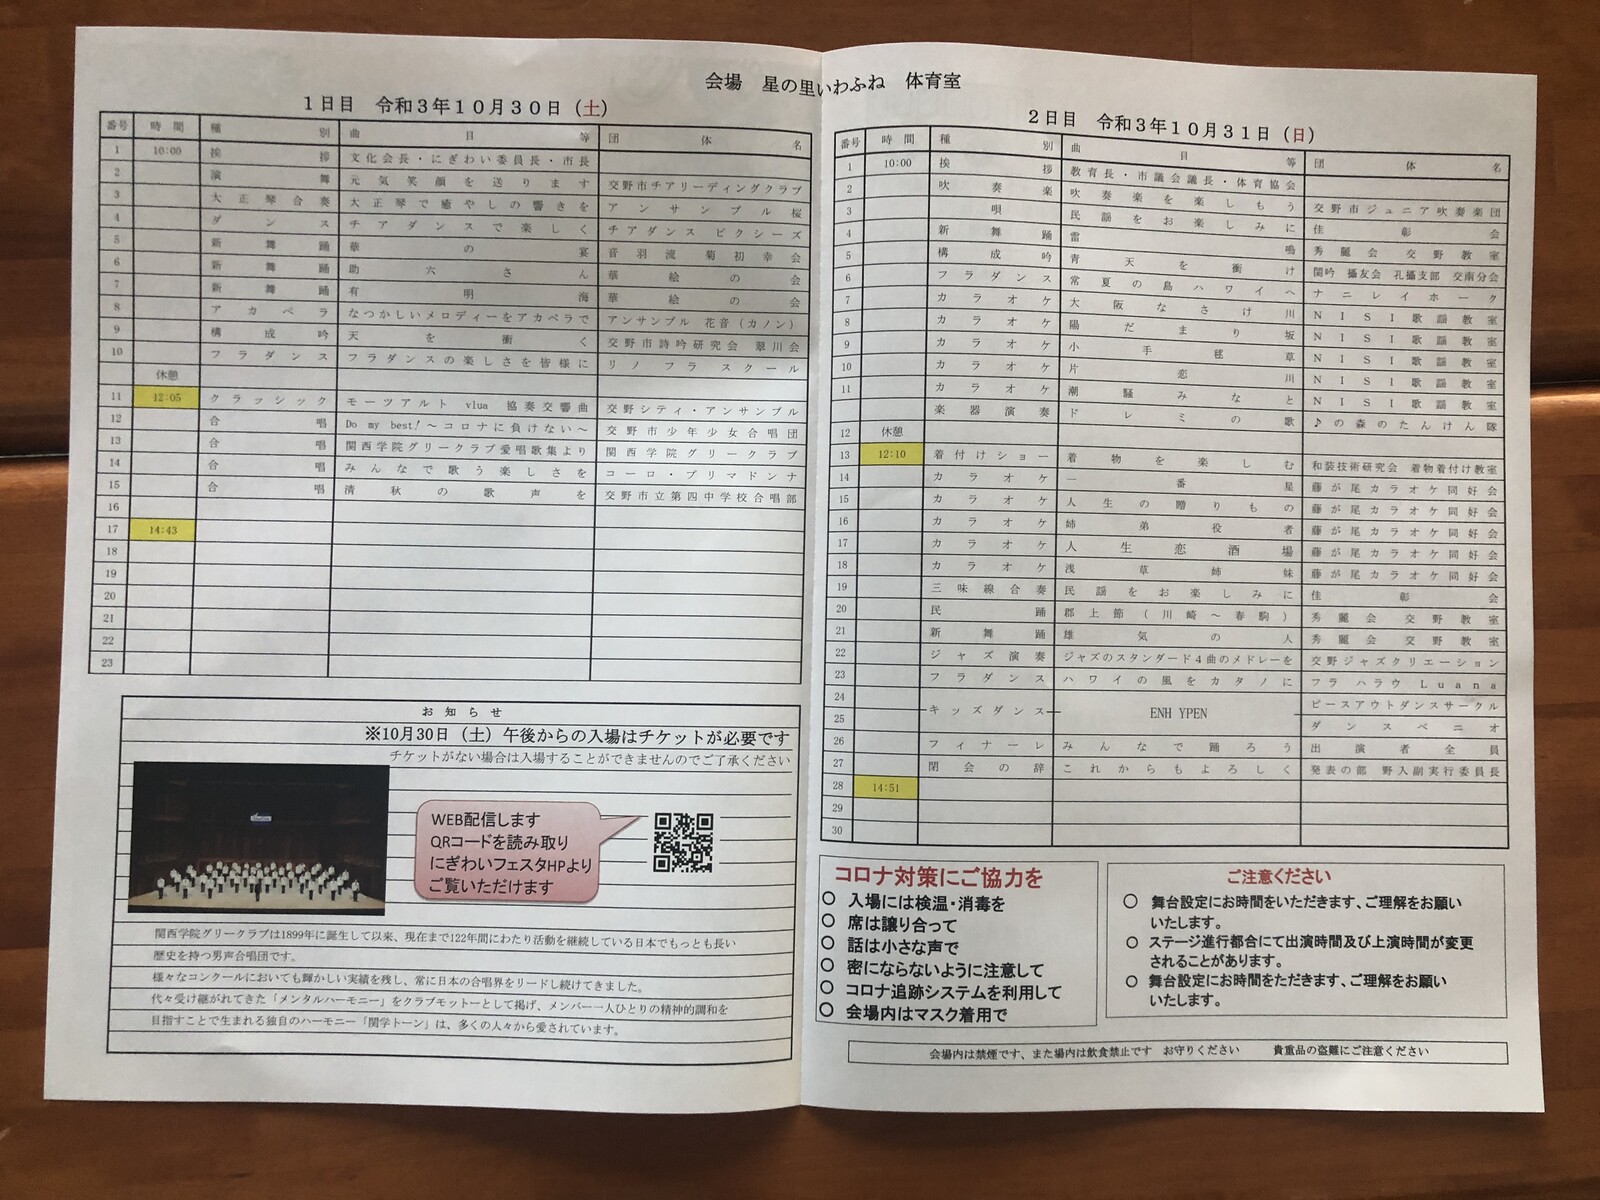 会場　星の里いわふね　体育室
１日目　令和３年１０月３０日（土）
番号 時間 種別 曲目等 団体名
1 10:00 挨拶 文化会長・にぎわい委員長・市長
2 演舞 元気笑顔を送ります 交野市チアリーディングクラブ
3 大正琴合奏 大正琴で癒やしの響きを アンサンブル桜
4 ダンス チアダンスで楽しく チアダンス ピクシーズ
5 新舞踊 華の宴 音羽流 菊初幸会
6 新舞踊 助六さん 華絵の会
7 新舞踊 有明海 華絵の会
8 アカペラ なつかしいメロディーをアカペラで アンサンブル 花音（カノン）
9 構成吟 天を衝く 交野市詩吟研究会 翠川会
10 フラダンス フラダンスの楽しさを皆様に リノ フラ スクール
休憩
11 12:05 クラッシック モーツアルト vlua 協奏交響曲 交野シティ・アンサンブル
12 合唱 Do my best!～コロナに負けない～ 交野市少年少女合唱団
13 合唱 関西学院グリークラブ愛唱歌集より 関西学院グリークラブ
14 合唱 みんなで歌う楽しさを コーロ・プリマドンナ
15 合唱 清秋の歌声を 交野市立第四中学校合唱部
16
17 14:43
18
19
20
21
22
23
お知らせ
※10月30日（土）午後からの入場はチケットが必要です
チケットがない場合は入場することができませんのでご了承ください
WEB配信します
QRコードを読み取り
にぎわいフェスタHPより
ご覧いただけます
関西学院グリークラブは1899年に誕生して以来、現在まで122年間にわたり活動を継続している日本でもっとも長い
歴史を持つ男声合唱団です。
様々なコンクールにおいても輝かしい実績を残し、常に日本の合唱界をリードし続けてきました。
代々受け継がれてきた「メンタルハーモニー」をクラブモットーとして掲げ、メンバー一人ひとりの精神的調和を
目指すことで生まれる独自のハーモニー「関学トーン」は、多くの人々から愛されています。
２日目　令和３年１０月３１日（日）
番号 時間 種別 曲目等 団体名
1 10:00 挨拶 教育長・市議会議長・体育協会
2 吹奏楽 吹奏楽を楽しもう 交野市ジュニア吹奏楽団
3 唄 民謡をお楽しみに 佳彰会
4 新舞踊 雷鳴 秀麗会 交野教室
5 構成吟 青天を衝け 関吟 攝友会 孔攝支部 交南分会
6 フラダンス 常夏の島ハワイへ ナニレイホーク
7 カラオケ 大阪なさけ川 ＮＩＳＩ歌謡教室
8 カラオケ 陽だまり坂 ＮＩＳＩ歌謡教室
9 カラオケ 小手毬草 ＮＩＳＩ歌謡教室
10 カラオケ 片恋川 ＮＩＳＩ歌謡教室
11 カラオケ 潮騒みなと ＮＩＳＩ歌謡教室
楽器演奏 ドレミの歌 ♪の森のたんけん隊
12 休憩
13 12:10 着付けショー 着物を楽しむ 和装技術研究会 着物着付け教室
14 カラオケ 一番星 藤が尾カラオケ同好会
15 カラオケ 人生の贈りもの 藤が尾カラオケ同好会
16 カラオケ 姉弟役者 藤が尾カラオケ同好会
17 カラオケ 人生恋酒場 藤が尾カラオケ同好会
18 カラオケ 浅草姉妹 藤が尾カラオケ同好会
19 三味線合奏 民謡をお楽しみに 佳彰会
20 民踊 郡上節（川崎～春駒） 秀麗会 交野教室
21 新舞踊 雄気の人 秀麗会 交野教室
22 ジャズ演奏 ジャズのスタンダード４曲のメドレーを 交野ジャズクリエーション
23 フラダンス ハワイの風をカタノに フラ ハラウ Ｌｕａｎａ
24 ピースアウトダンスサークル
キッズダンス ENH YPEN
25 ダンスベニオ
26 フィナーレ みんなで踊ろう 出演者全員
27 閉会の辞 これからもよろしく 発表の部 野入副実行委員長
28 14:51
29
30
コロナ対策にご協力を
○ 入場には検温・消毒を
○ 席は譲り合って
○ 話は小さな声で
○ 密にならないように注意して
○ コロナ追跡システムを利用して
○ 会場内はマスク着用で
ご注意ください
○ 舞台設定にお時間をいただきます、ご理解をお願い
いたします。
○ ステージ進行都合にて出演時間及び上演時間が変更
されることがあります。
○ 舞台設定にお時間をただきます、ご理解をお願い
いたします。
会場内は禁煙です、また場内は飲食禁止です　お守りください　　貴重品の盗難にご注意ください